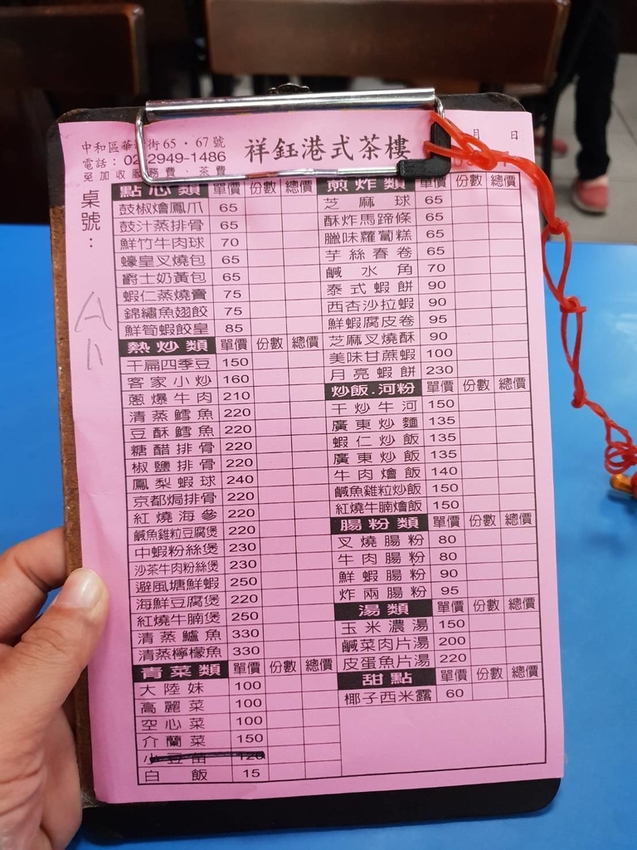 中和區華新街65.67號
電話:02-2949-1486
免加收服務費.茶費
祥鈺港式茶樓
月 日
桌號:
A11
點心類 單價 份數 總價
鼓椒燴鳳爪 65
鼓汁蒸排骨 65
鮮竹牛肉球 70
蠔皇叉燒包 65
爵士奶黃包 65
蝦仁蒸燒賣 75
錦繡魚翅餃 75
鮮筍蝦餃皇 85
熱炒類 單價 份數 總價
干扁四季豆 150
客家小炒 160
蔥爆牛肉 210
清蒸鱈魚 220
豆酥鱈魚 220
糖醋排骨 220
椒鹽排骨 220
鳳梨蝦球 240
京都焗排骨 220
紅燒海參 220
鹹魚雞粒豆腐煲 220
中蝦粉絲煲 230
沙茶牛肉粉絲煲 230
避風塘鮮蝦 250
海鮮豆腐煲 220
紅燒牛腩煲 250
清蒸鱸魚 330
清蒸檸檬魚 330
青菜類 單價 份數 總價
大陸妹 100
高麗菜 100
空心菜 100
介蘭菜 150
小豆苗 120
白飯 15
煎炸類 單價 份數 總價
芝麻球 65
酥炸馬蹄條 65
臘味蘿蔔糕 65
芋絲春卷 65
鹹水角 70
泰式蝦餅 90
西杏沙拉蝦 90
鮮蝦腐皮卷 95
芝麻叉燒酥 90
美味甘蔗蝦 100
月亮蝦餅 230
炒飯.河粉 單價 份數 總價
干炒牛河 150
廣東炒麵 135
蝦仁炒飯 135
廣東炒飯 135
牛肉燴飯 140
鹹魚雞粒炒飯 150
紅燒牛腩燴飯 150
腸粉類 單價 份數 總價
叉燒腸粉 80
牛肉腸粉 80
鮮蝦腸粉 90
炸兩腸粉 95
湯類 單價 份數 總價
玉米濃湯 150
鹹菜肉片湯 200
皮蛋魚片湯 220
甜點 單價 份數 總價
椰子西米露 60